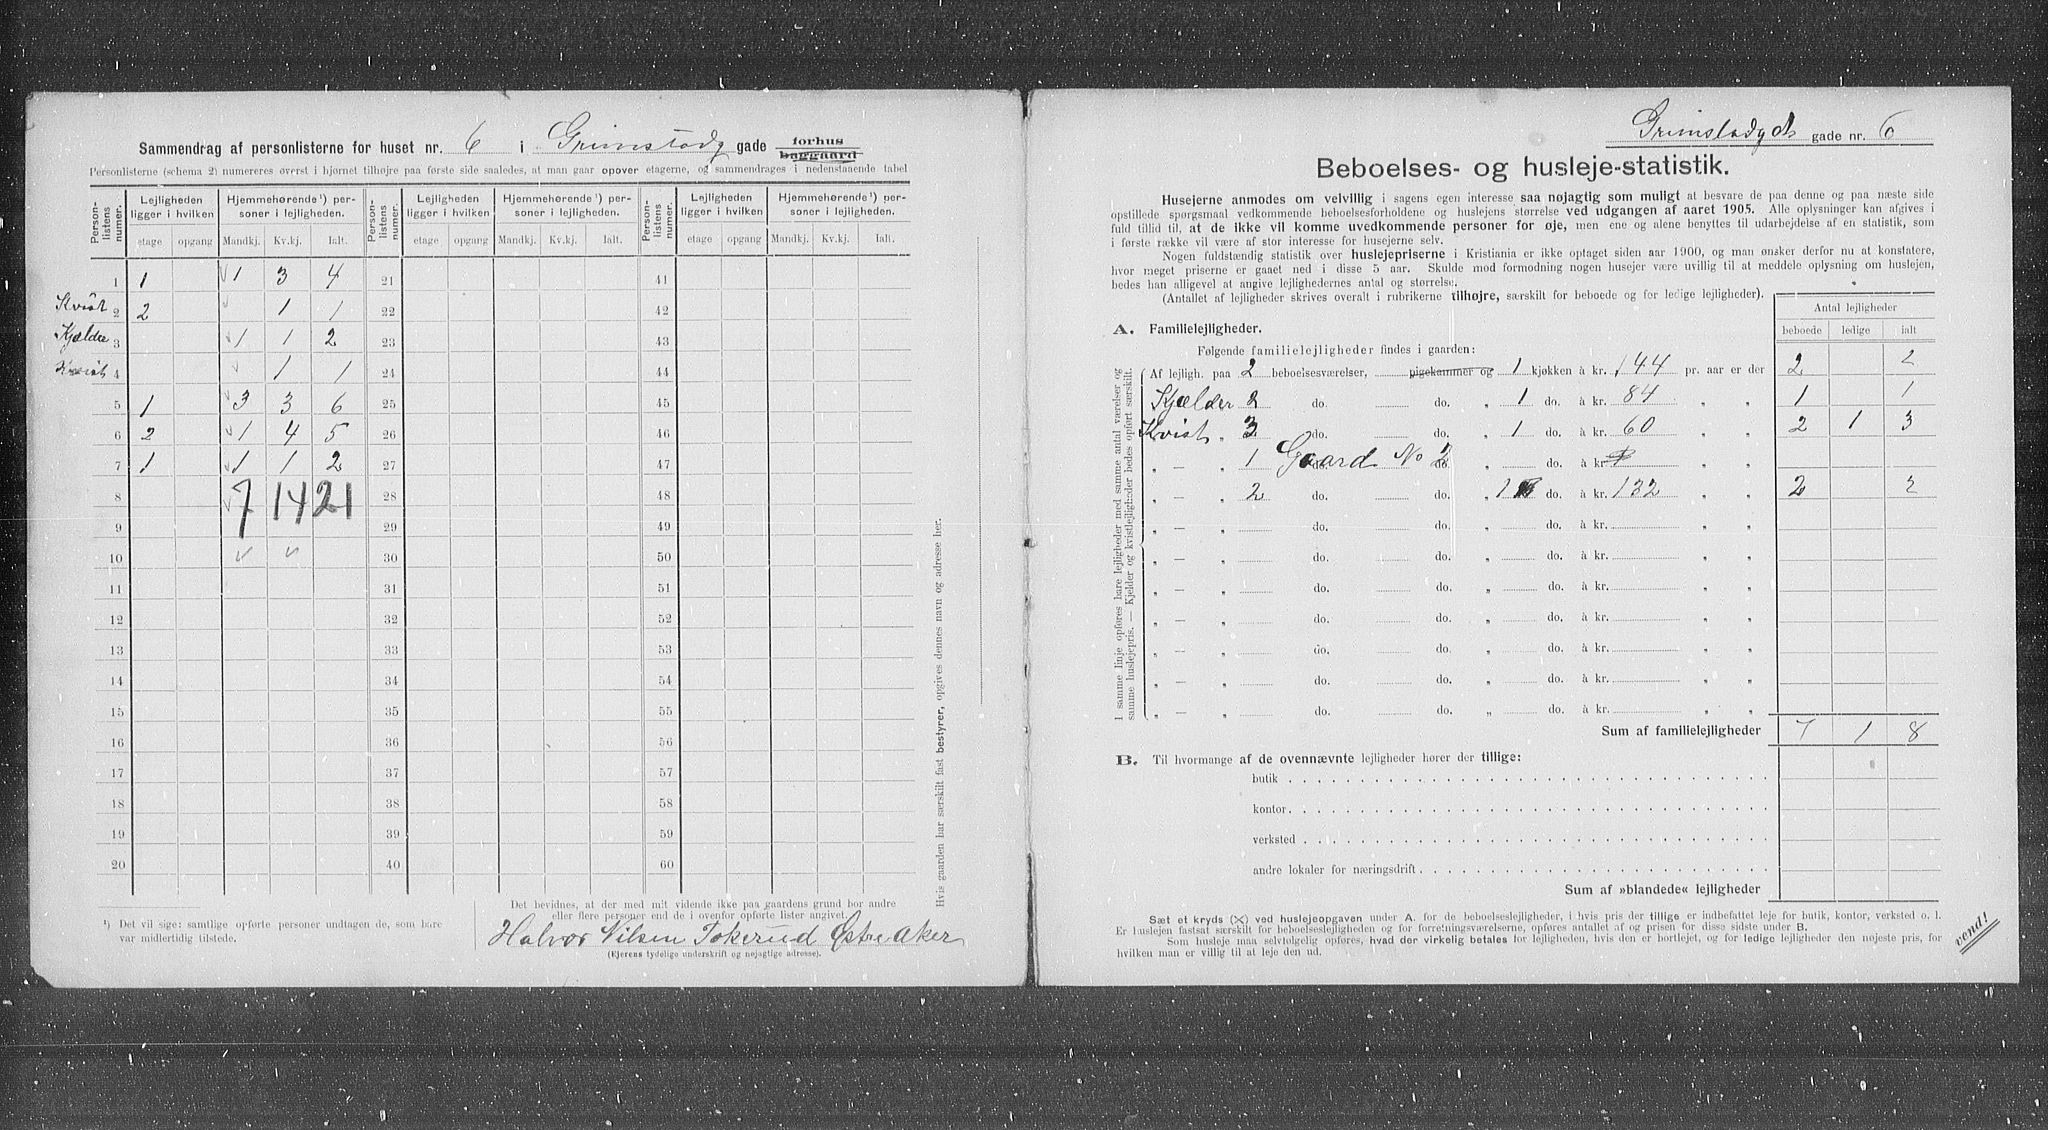 Sammendrag af personlisterne for huset nr. 6 i Grimstadg gade forhus baggaard
Personlisterne (schema 2) numereres øverst i hjørnet tilhøjre paa første side saaledes, at man gaar opover etagerne, og sammendrages i nedenstaaende tabel
Person-listens nummer. Lejligheden ligger i hvilken Hjemmehørende ¹) personer i lejligheden. Person-listens nummer. Lejligheden ligger i hvilken Hjemmehørende ¹) personer i lejligheden. Person-listens nummer. Lejligheden ligger i hvilken Hjemmehørende ¹) personer i lejligheden.
etage opgang Mandkj. Kv.kj. Ialt. etage opgang Mandkj. Kv.kj. Ialt. etage opgang Mandkj. Kv.kj. Ialt.
1 1 1 3 4 21 41
Kvist 2 2 1 1 22 42
Kjælder 3 1 1 2 23 43
Kvist 4 1 1 24 44
5 1 3 3 6 25 45
6 2 1 4 5 26 46
7 1 1 1 2 27 47
8 7 14 21 28 48
9 29 49
10 30 50
11 31 51
12 32 52
13 33 53
14 34 54
15 35 55
16 36 56
17 37 57
18 38 58
19 39 59
20 40 60
Hvis gaarden har særskilt fast bestyrer, opgives dennes navn og adresse her.
¹) Det vil sige: samtlige opførte personer undtagen de, som bare var midlertidig tilstede.
Det bevidnes, at der med mit vidende ikke paa gaardens grund bor andre
eller flere personer end de i ovenfor opførte lister angivet.
Halvor Nilsen Tokerud Østre Aker
(Ejerens tydelige underskrift og nøjagtige adresse).
Grimstadgd gade nr. 6
Beboelses- og husleje-statistik.
Husejerne anmodes om velvillig i sagens egen interesse saa nøjagtig som muligt at besvare de paa denne og paa næste side
opstillede spørgsmaal vedkommende beboelsesforholdene og huslejens størrelse ved udgangen af aaret 1905. Alle oplysninger kan afgives i
fuld tillid til, at de ikke vil komme uvedkommende personer for øje, men ene og alene benyttes til udarbejdelse af en statistik, som
i første række vil være af stor interesse for husejerne selv.
Nogen fuldstændig statistik over huslejepriserne i Kristiania er ikke optaget siden aar 1900, og man ønsker derfor nu at konstatere,
hvor meget priserne er gaaet ned i disse 5 aar. Skulde mod formodning nogen husejer være uvillig til at meddele oplysning om huslejen,
bedes han alligevel at angive lejlighedernes antal og størrelse.
(Antallet af lejligheder skrives overalt i rubrikerne tilhøjre, særskilt for beboede og for ledige lejligheder).
Antal lejligheder
beboede ledige ialt
A. Familielejligheder.
Følgende familielejligheder findes i gaarden:
I samme linje opføres bare lejligheder med samme antal værelser og samme huslejepris. — Kjelder og kvistlejligheder bedes opført særskilt.
Af lejligh. paa 2 beboelsesværelser, pigekammer og 1 kjøkken à kr. 144 pr. aar er der 2 2
Kjælder 2 do. do. „ 1 do. à kr. 84 „ „ 1 1
Kvist „ do. do. „ 1 do. à kr. 60 „ „ 2 1 3
„ — „ 1 Gaard No 2 do. do. do. à kr. „ „
„ — „ 2 do. do. „ 1 do. à kr. 132 „ „ 2 2
„ — „ do. do. „ do. à kr. „ „
„ — „ do. do. „ do. à kr. „ „
„ — „ do. do. „ do. à kr. „ „
„ — „ do. do. „ do. à kr. „ „
„ — „ do. do. „ do. à kr. „ „
„ — „ do. do. „ do. à kr. „ „
„ — „ do. do. „ do. à kr. „ „
Sum af familielejligheder 7 1 8
B. Til hvormange af de ovennævnte lejligheder hører der tillige:
butik
kontor
verksted
andre lokaler for næringsdrift
Sum af »blandede« lejligheder
Sæt et kryds (X) ved huslejeopgaven under A. for de beboelseslejligheder, i hvis pris der tillige er indbefattet leje for butik, kontor, verksted o. l.
Er huslejen fastsat særskilt for beboelseslejligheden og for forretningsværelserne, opføres antallet af og prisen for disse sidste under B.
Som husleje maa selvfølgelig opføres, hvad der virkelig betales for lejligheden, hvis den er bortlejet, og for ledige lejligheder den nøjeste pris, for
hvilken man er villig til at leje den ud.
vend!